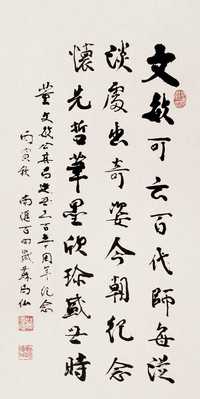 文敏可云百代師每從
淡處出奇姿今朝紀念
懷先哲筆墨欣珍盛世時
董文敏公其昌逝世三百五十周年紀念
丙寅秋 南匯百四歲蘇局仙